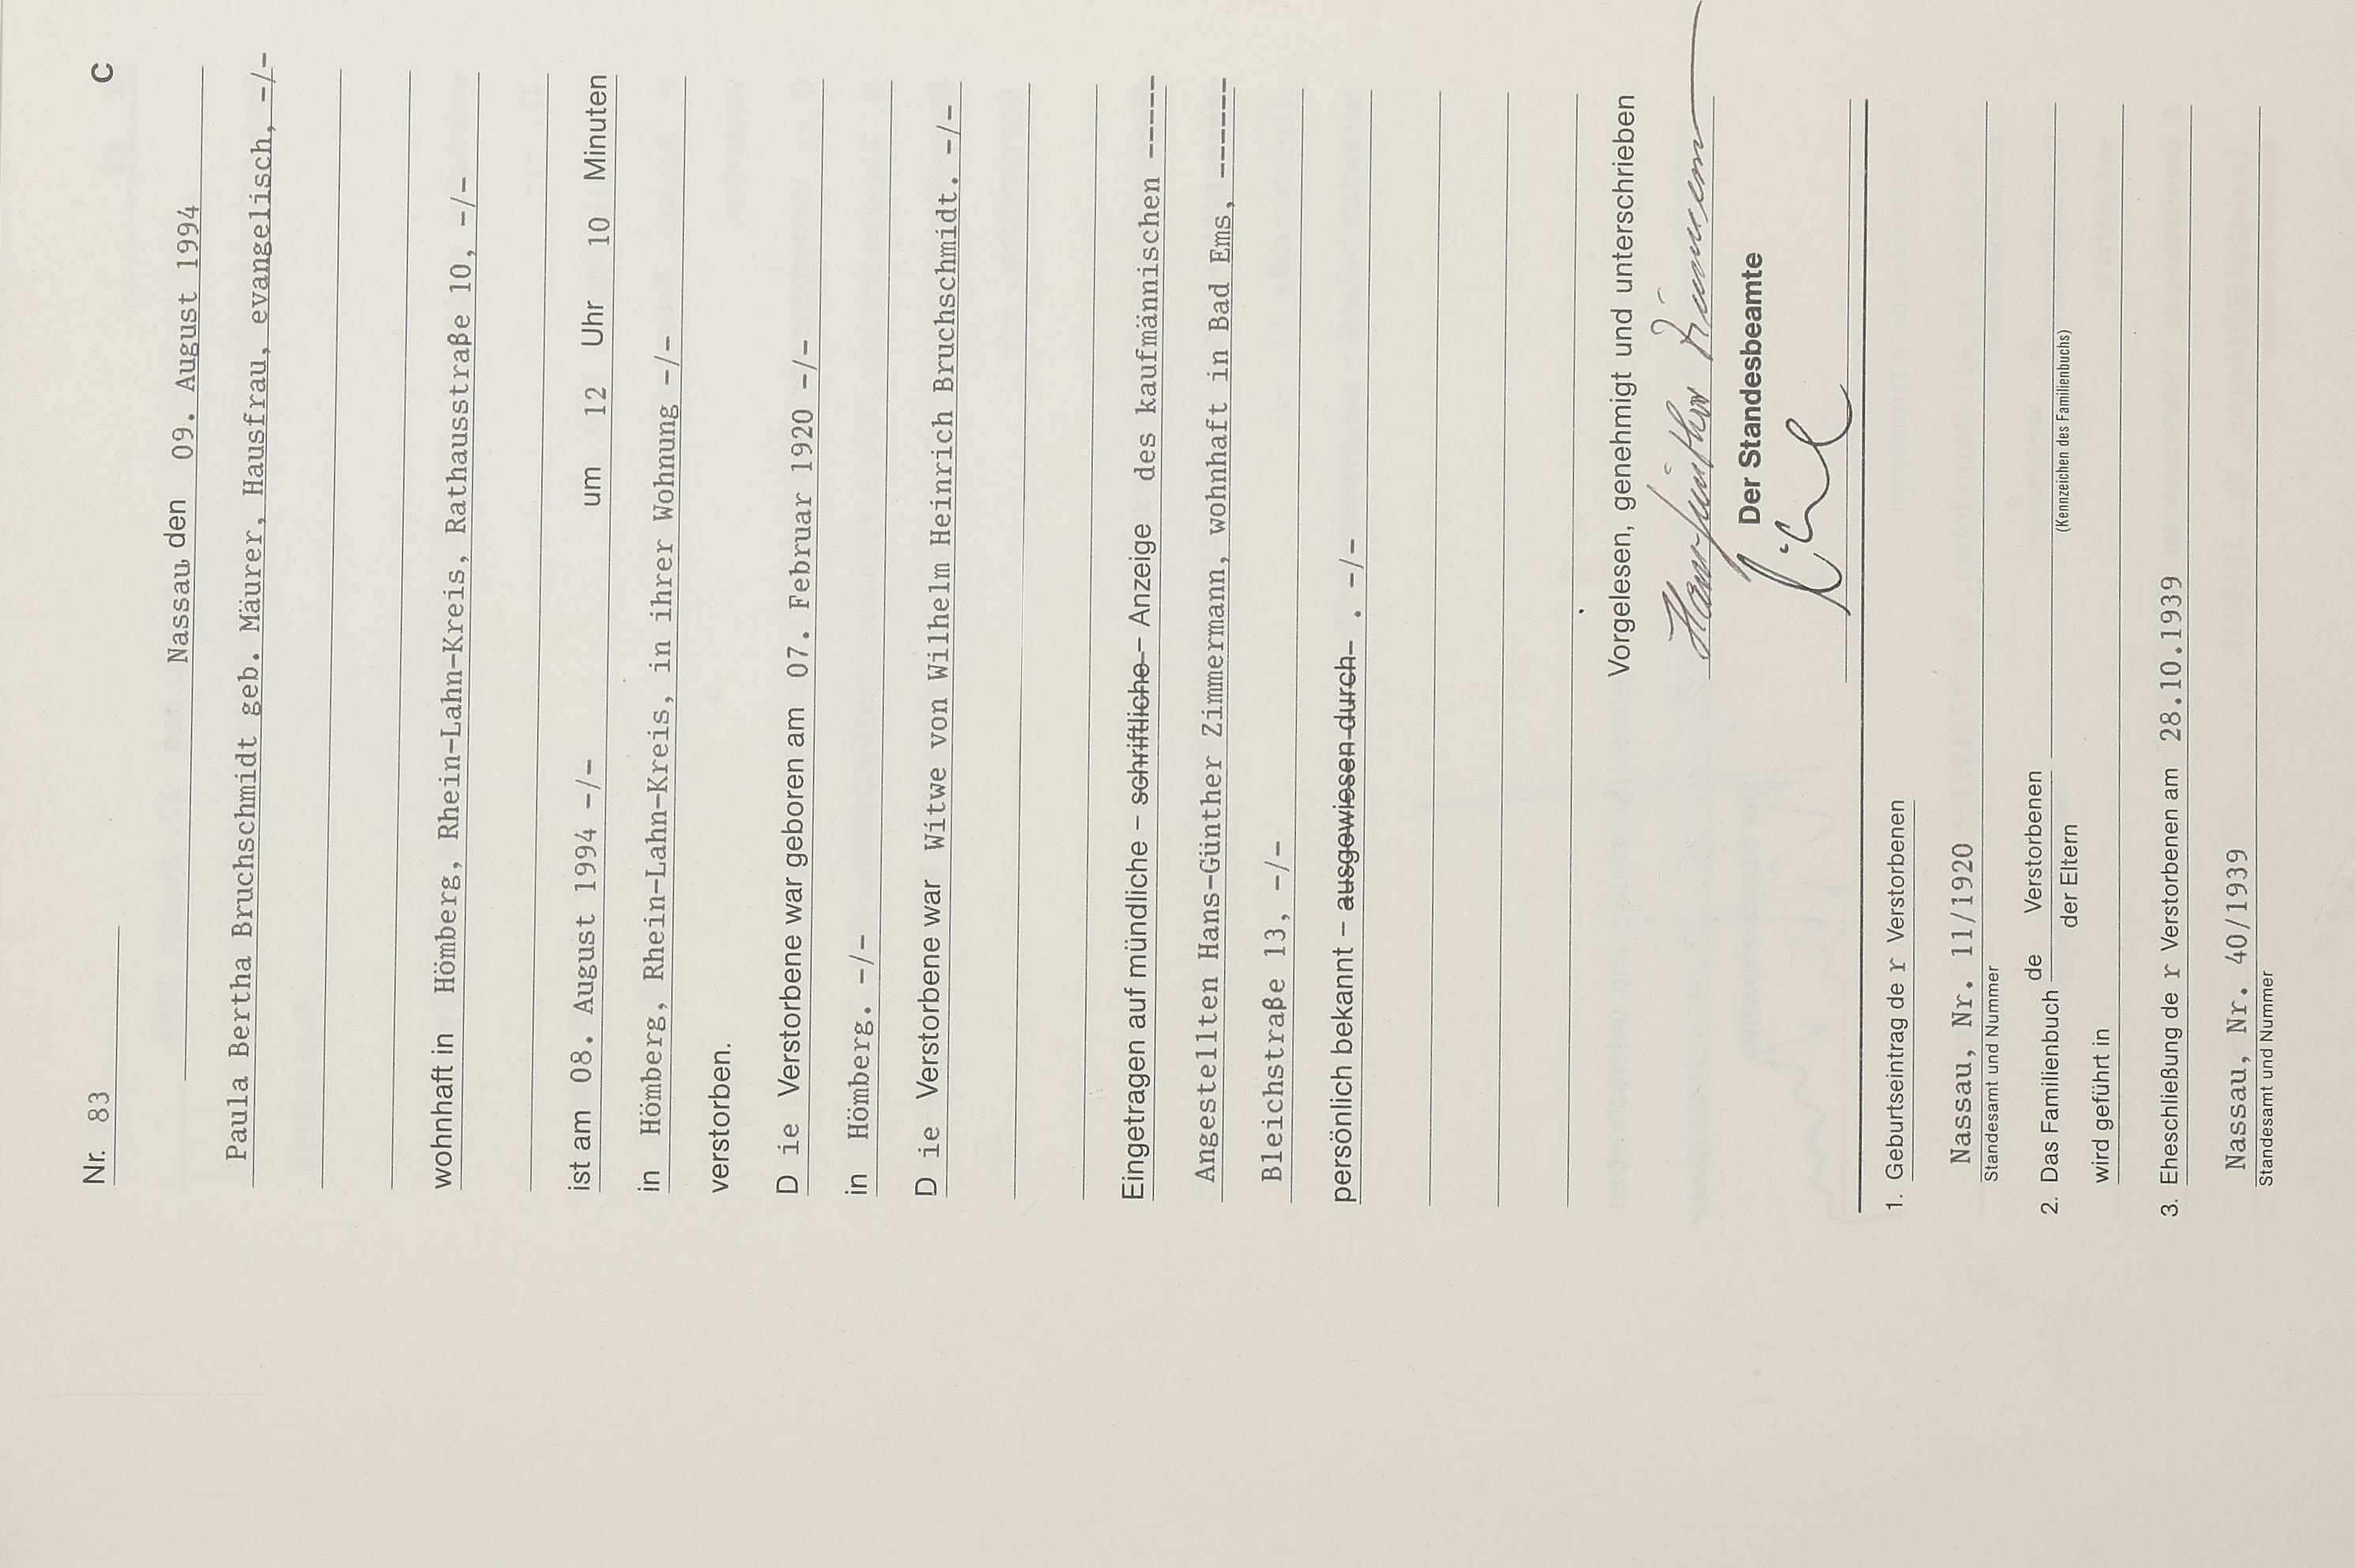 Nr. 83 C
Nassau, den 09. August 1994
Paula Bertha Bruchschmidt geb. Mäurer, Hausfrau, evangelisch, -/-
wohnhaft in Hömberg, Rhein-Lahn-Kreis, Rathausstraße 10, -/-
ist am 08. August 1994 -/- um 12 Uhr 10 Minuten
in Hömberg, Rhein-Lahn-Kreis, in ihrer Wohnung -/-
verstorben.
D ie Verstorbene war geboren am 07. Februar 1920 -/-
in Hömberg. -/-
D ie Verstorbene war Witwe von Wilhelm Heinrich Bruchschmidt. -/-
Eingetragen auf mündliche – schriftliche – Anzeige des kaufmännischen ------
Angestellten Hans-Günther Zimmermann, wohnhaft in Bad Ems, -------
Bleichstraße 13, -/-
persönlich bekannt – ausgewiesen durch . -/-
Vorgelesen, genehmigt und unterschrieben
Hans-Günther Zimmermann
Der Standesbeamte
1. Geburtseintrag de r Verstorbenen
Nassau, Nr. 11/1920
Standesamt und Nummer
2. Das Familienbuch de Verstorbenen
der Eltern (Kennzeichen des Familienbuchs)
wird geführt in
3. Eheschließung de r Verstorbenen am 28.10.1939
Nassau, Nr. 40/1939
Standesamt und Nummer